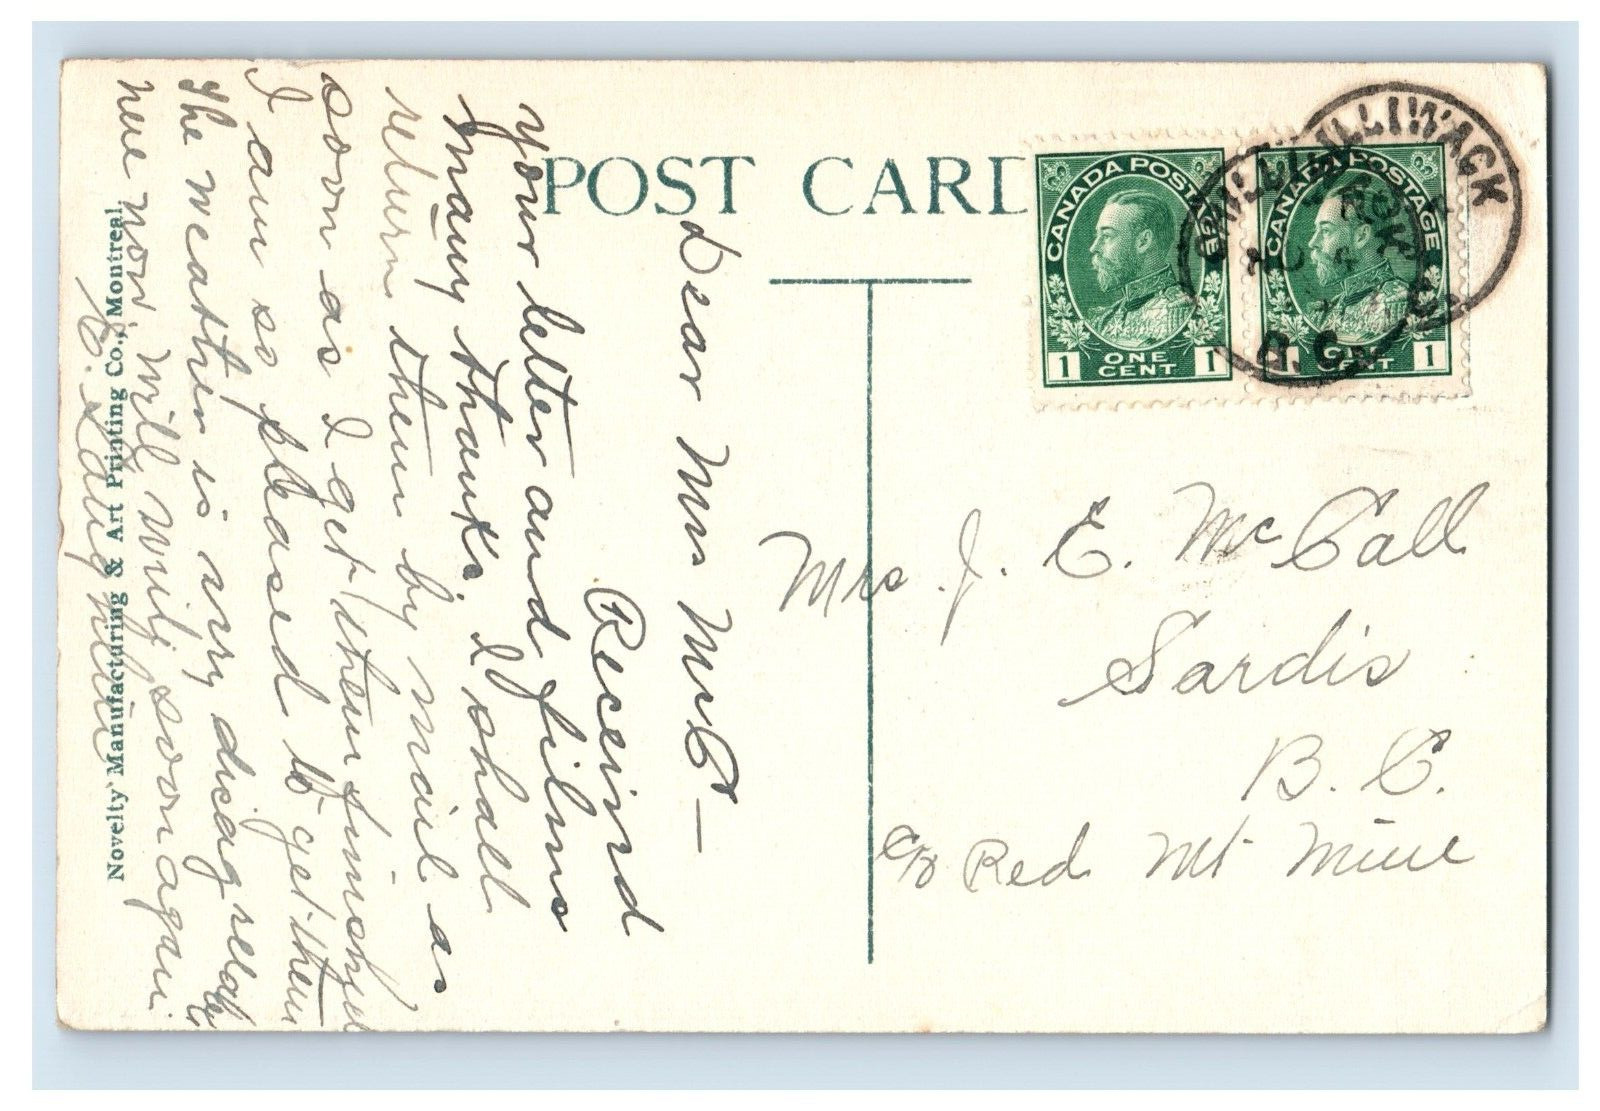 POST CARD
CANADA POSTAGE
1 ONE CENT 1
CANADA POSTAGE
1 ONE CENT 1
CHILLIWACK
B.C.
Dear Mrs McC—
Received
your letter and films
many thanks. I shall
return them by mail as
soon as I get them finished
I am so pleased to get them
The weather is very disagreeable
here now will write soon again
Novelty Manufacturing & Art Printing Co., Montreal
Mrs. J. E. McCall
Sardis
B. C.
c/o Red Mt Mine